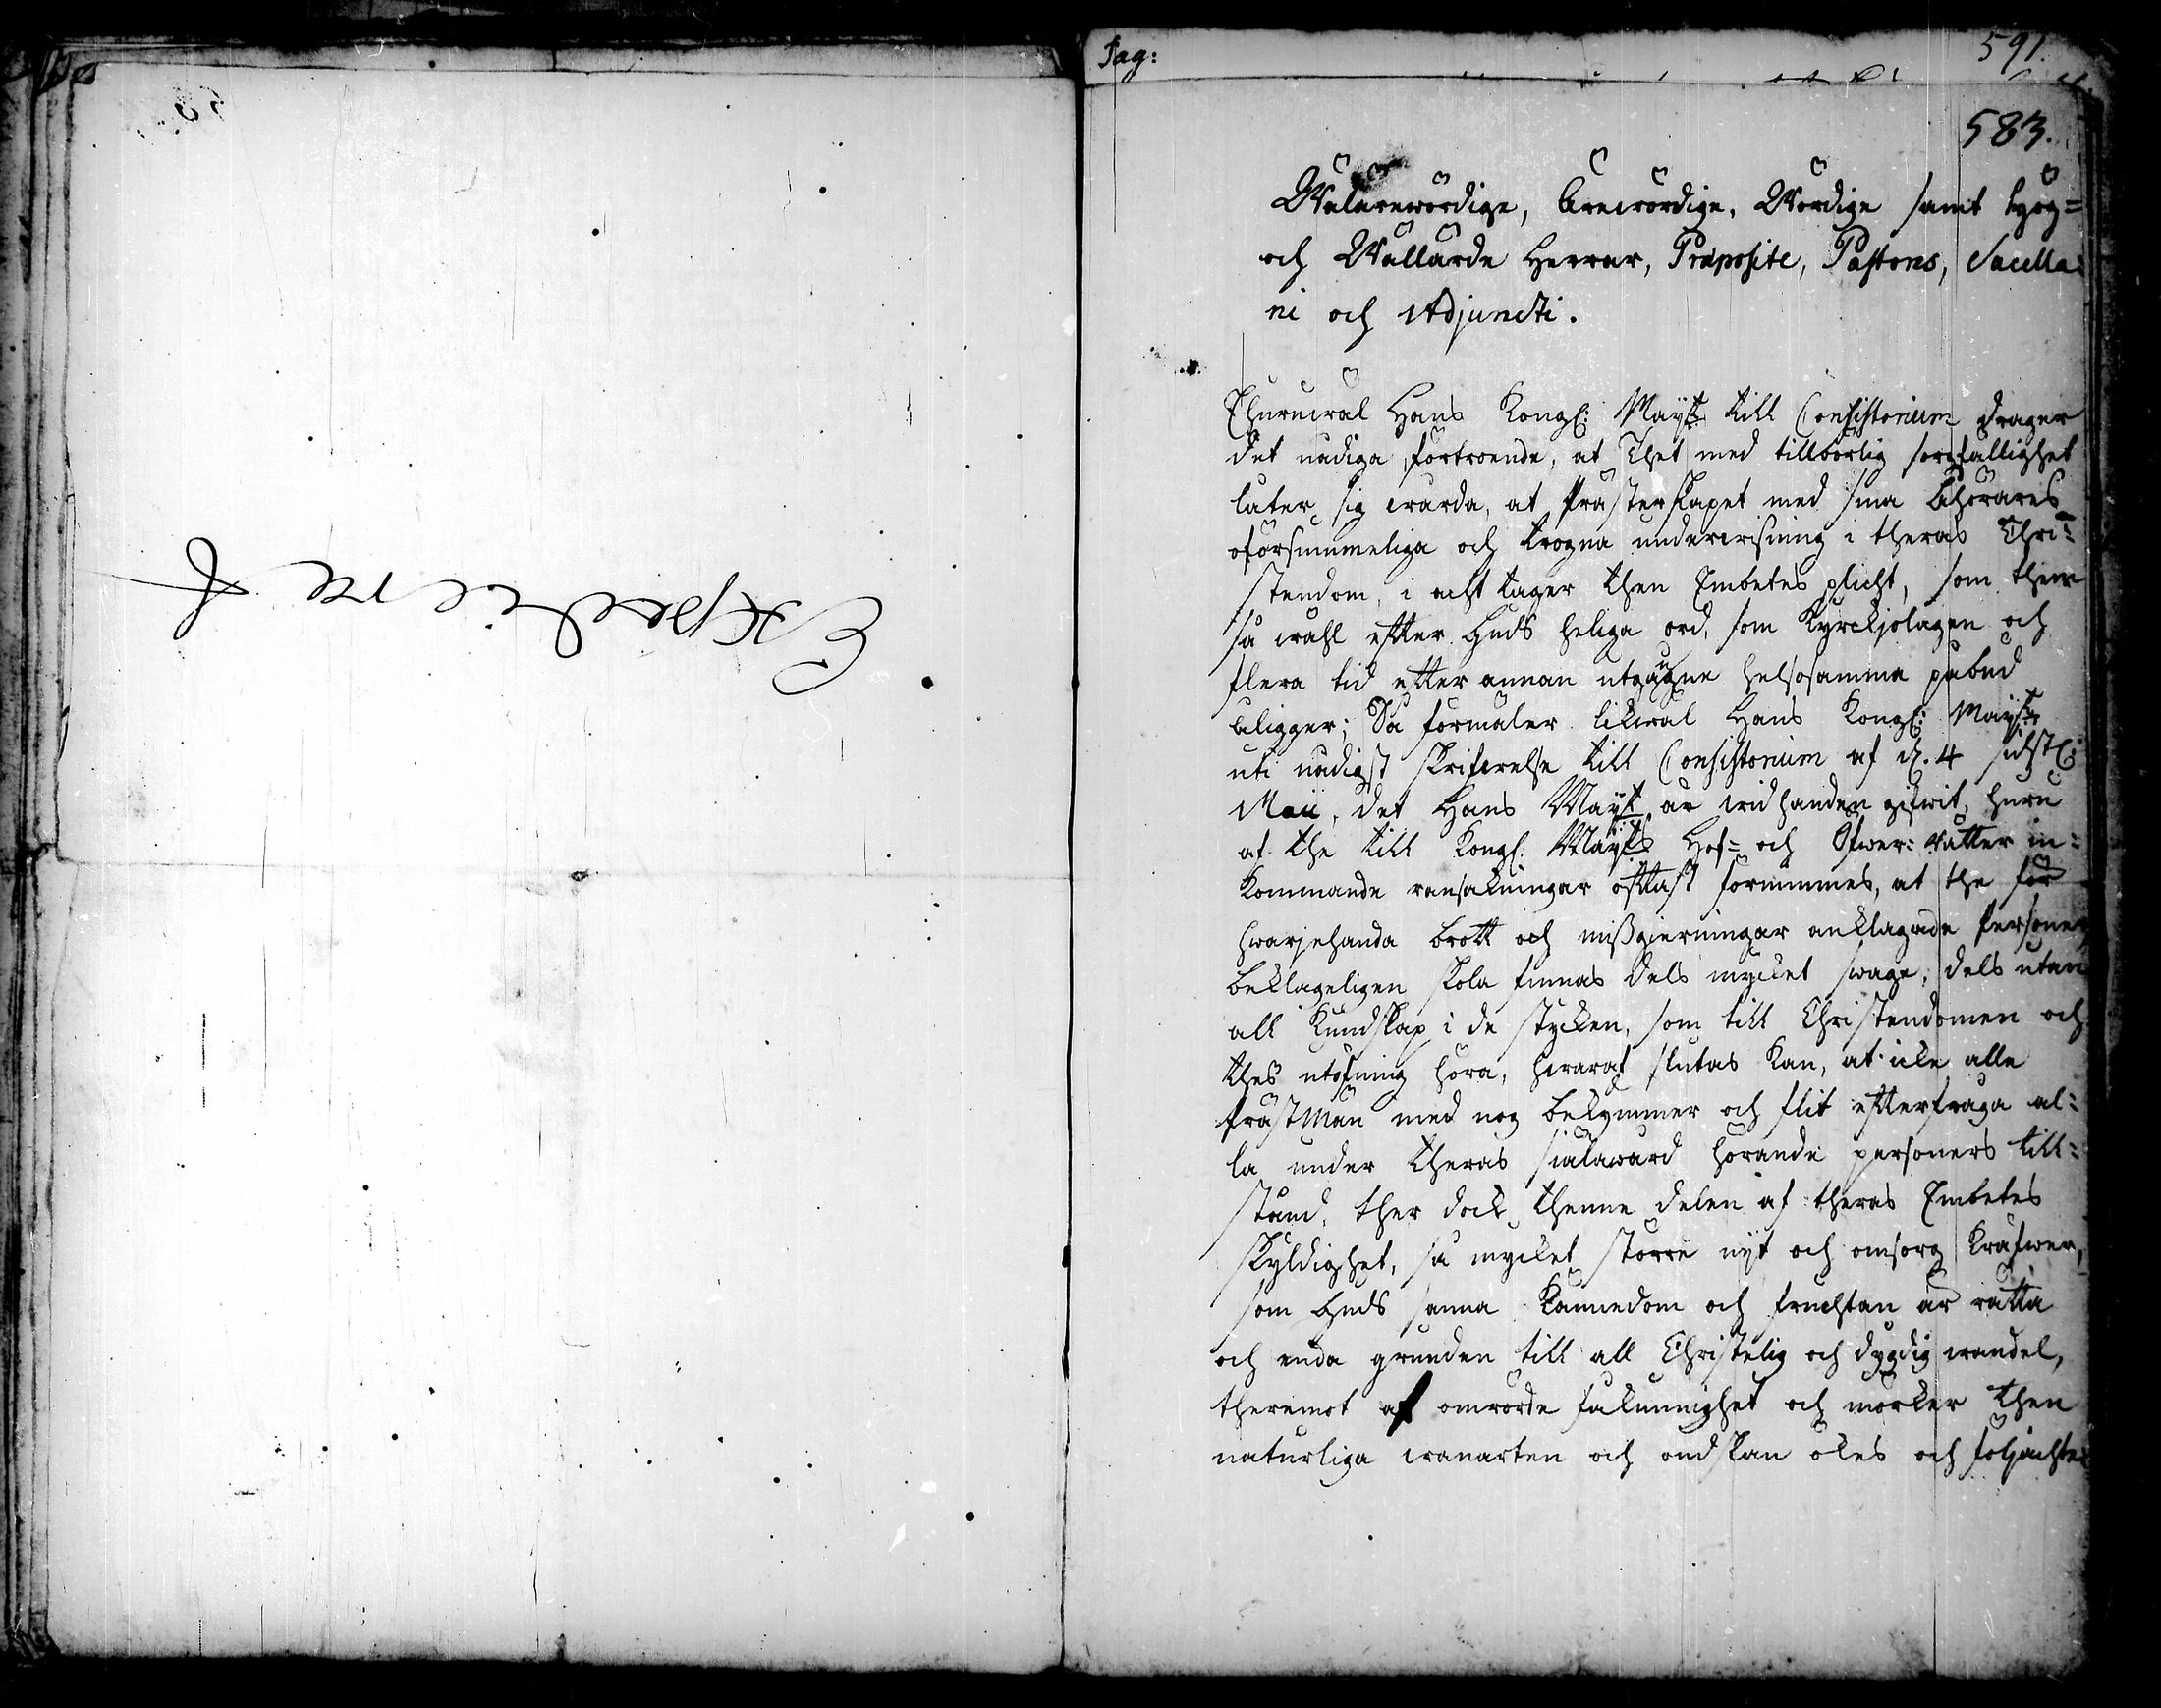 Expediere
Pag:
591.
583.
Wälärewördige, Ärewördige, Wördige samt Hög=
och Wällärde Herrar, Præposite, Pastores, Sacella=
ni och Adjuncti.
Ehuruwäl Hans Kongl: Mayt till Consistorium drager
det nådiga förtroende, at Thet med tillbörlig sorgfällighet
låter sig wårda, at Prästerskapet med sina åhörares
oförsummeliga och trogna underwisning i theras Chri=
stendom, i acht tager then Embetes plicht, som them
så wähl efter Guds heliga ord, som Kyrckjolagen och
flera tid efter annan utgågne helsosamma påbud
åligger; Så förmäler likwäl Hans Kongl: Mayt
uti nådigst skrifwelse till Consistorium af d. 4 sidstl:
Maii, det Hans Mayt är widhanden gifwit, huru
af the till Kongl: Mayts Hof= och Öfwer=rätter in=
kommande ransakningar oftast förnimmes, at the för
hwarjehanda brott och mißgierningar anklagade Personer
beklageligen skola finnas dels mycket swage, dels utan
all Kundskap i de stycken, som till Christendomen och
thes utöfning höra, hwaraf slutas kan, at icke alle
PrästMän med nog bekymmer och flit efterfråga al=
la under theras siälawård hörande personers till=
stånd, ther dock thenne delen af theras Embetes
skyldighet, så mycket större nijt och omsorg kräfwer,
som Guds sanna Kännedom och fruchtan är rätta
och enda grunden till all Christelig och dygdig wandel,
theremot af omrörde fåkunnighet och mörcker then
naturliga wanarten och ondskan ökes och följachte